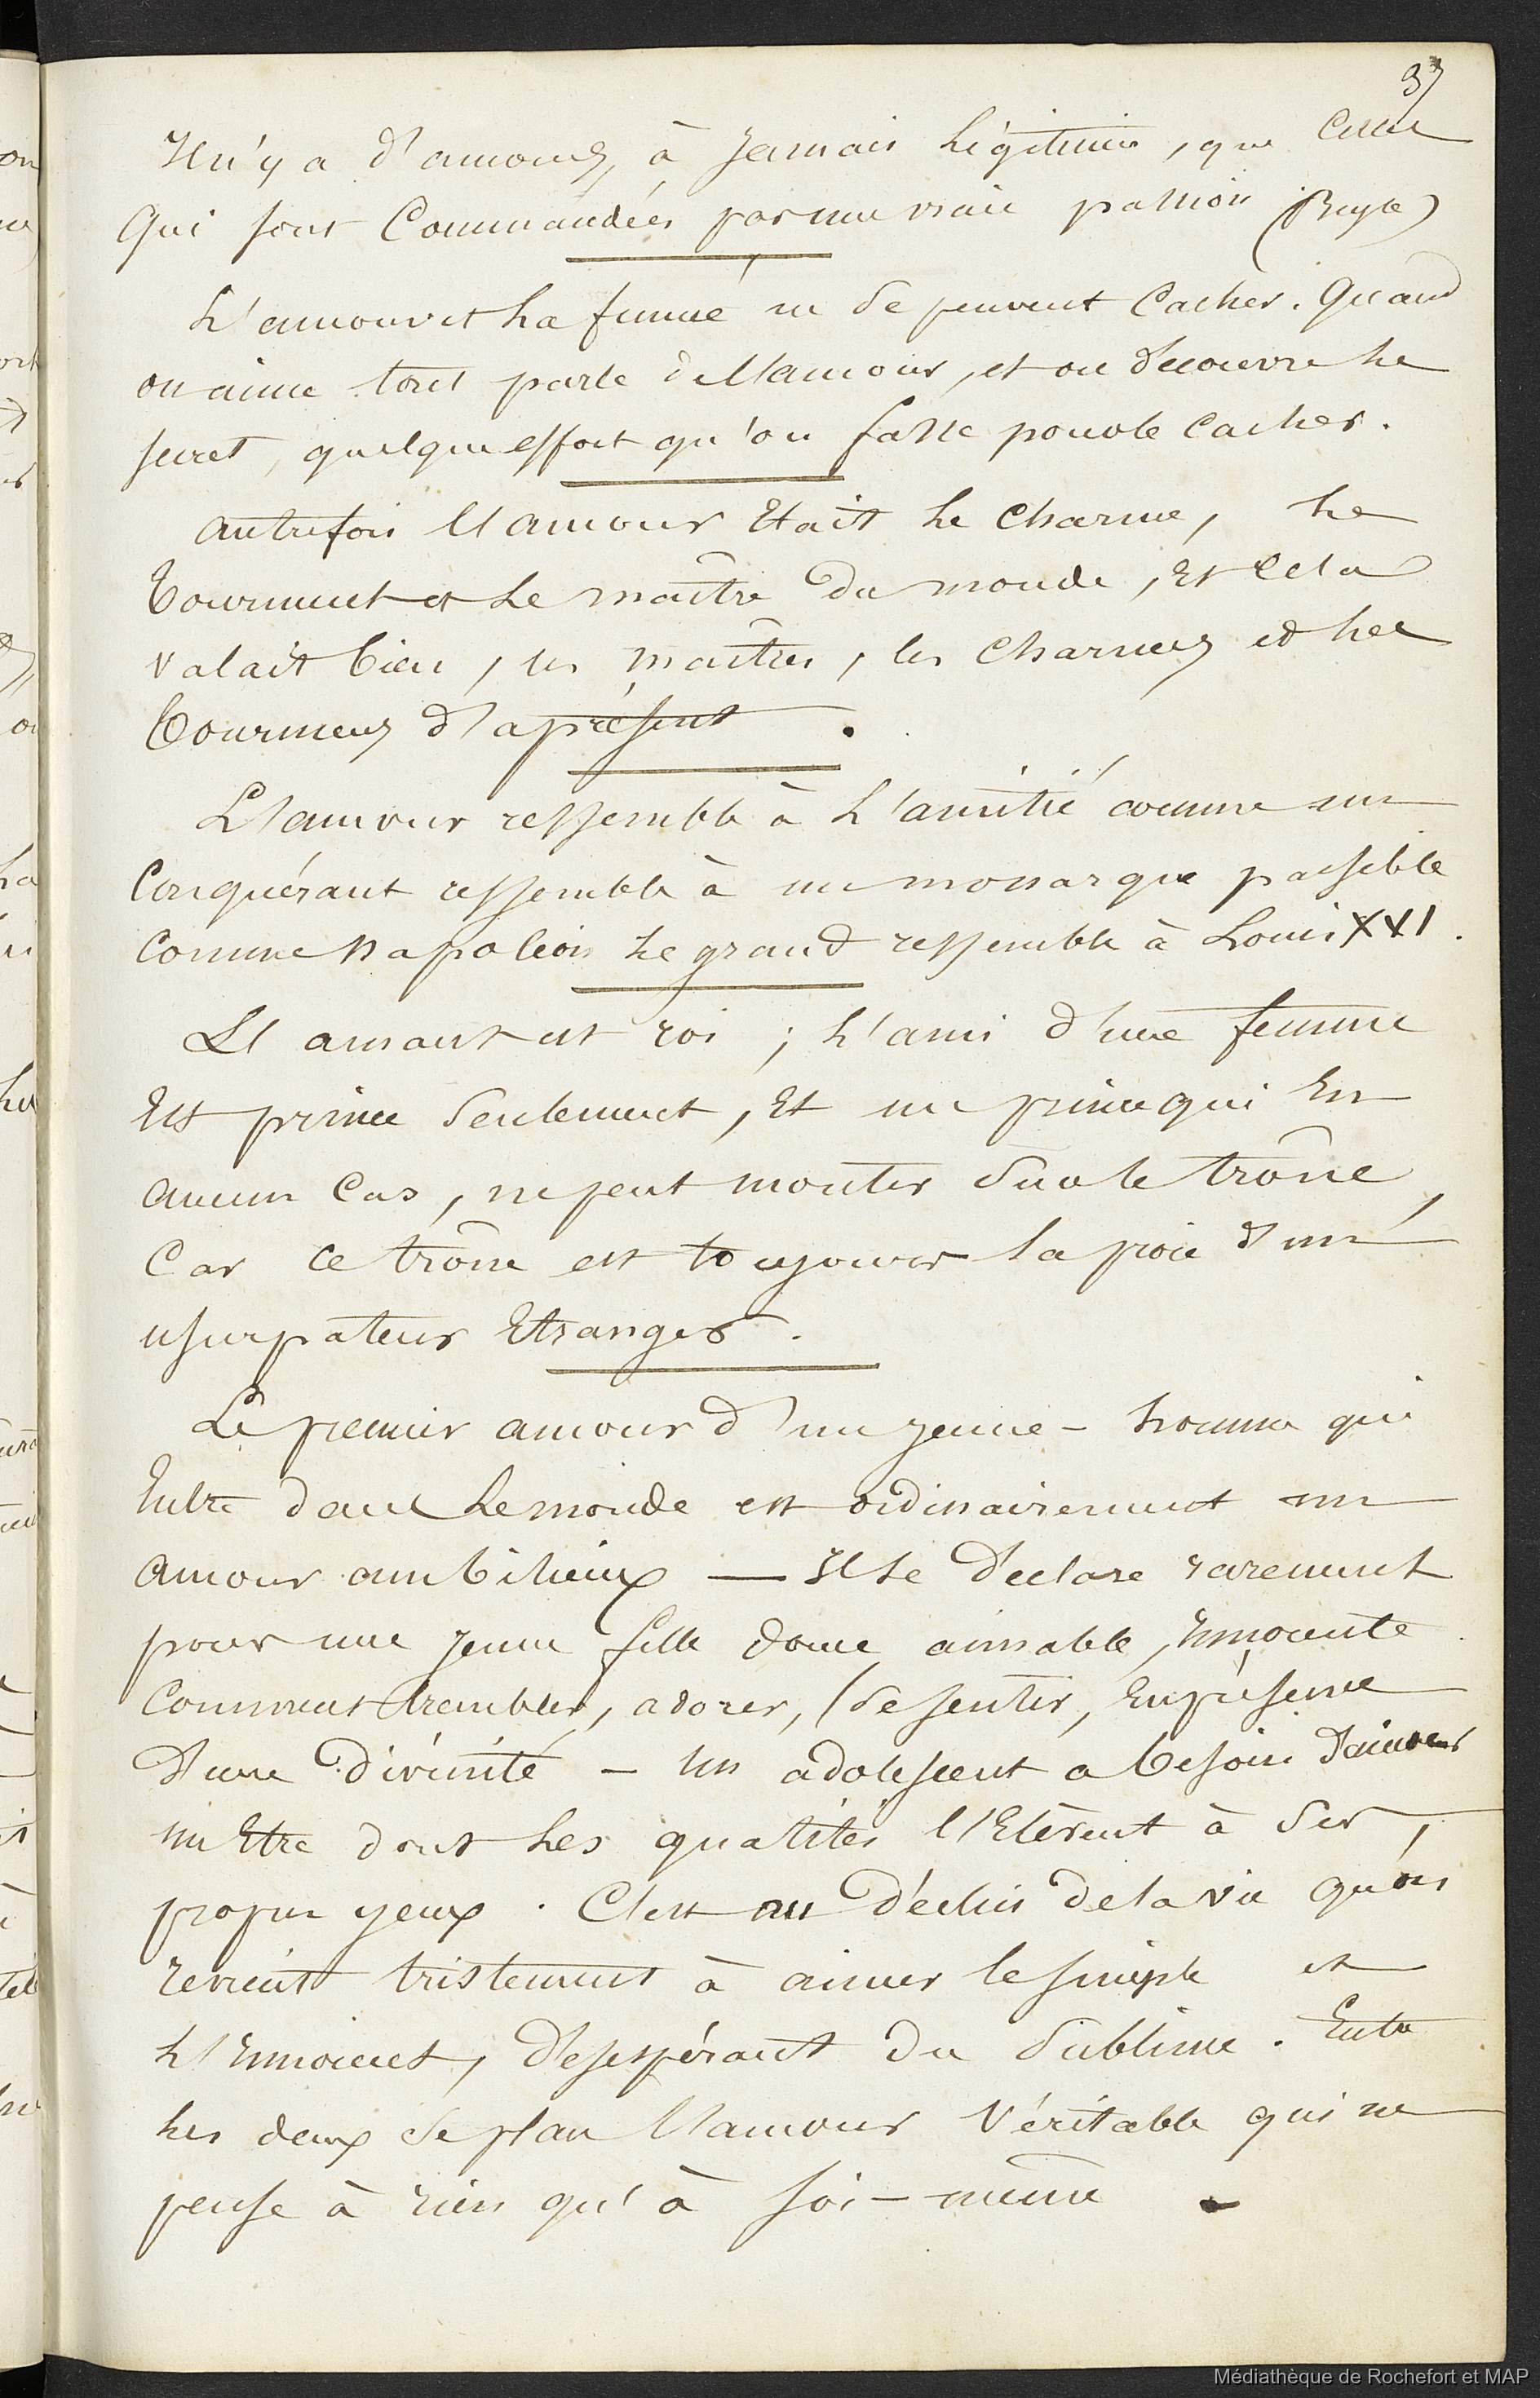 37
Il n'y a d'amours, à jamais légitimes, que ceux
Qui sont Commandées par une vraie passion (Beyle)
L'amour et la fumée ne se peuvent Cacher. Quand
on aime tout parle de l'amour, et on découvre le
secret, quelque effort qu'on fasse pour le cacher.
autrefois l'amour Etait le Charme, le
tourment et le maître du monde, Et Cela
valait bien, les maîtres, les charmes et les
tourmens d'aprésent.
L'amour ressemble à l'amitié comme un
Conquérant ressemble à un monarque paisible
Comme Napoléon le grand ressemble à Louis XVI.
L'amant est roi ; l'ami d'une femme
Est prince seulement, Et un prince qui En
aucun Cas, ne peut monter sur le trône,
Car ce trône est toujours la proie d'un
usurpateur Etranger.
Le premier amour d'un jeune-homme qui
Entre dans le monde est ordinairement un
amour ambitieux — Il se déclare rarement
pour une jeune fille douce aimable, Innocente.
Comment trembler, adorer, se sentir, En présence
D'une Divinité – Un adolescent a besoin D'aimer
un Etre dont les qualités l'Elèvent à ses
propres yeux. C'est au déclin de la vie qu'on
revient tristement à aimer le simple et
l'Innocent, désespérant du Sublime. Entre
les deux se place l'amour Véritable qui ne
pense à rien qu'à soi-même.
Médiathèque de Rochefort et MAP